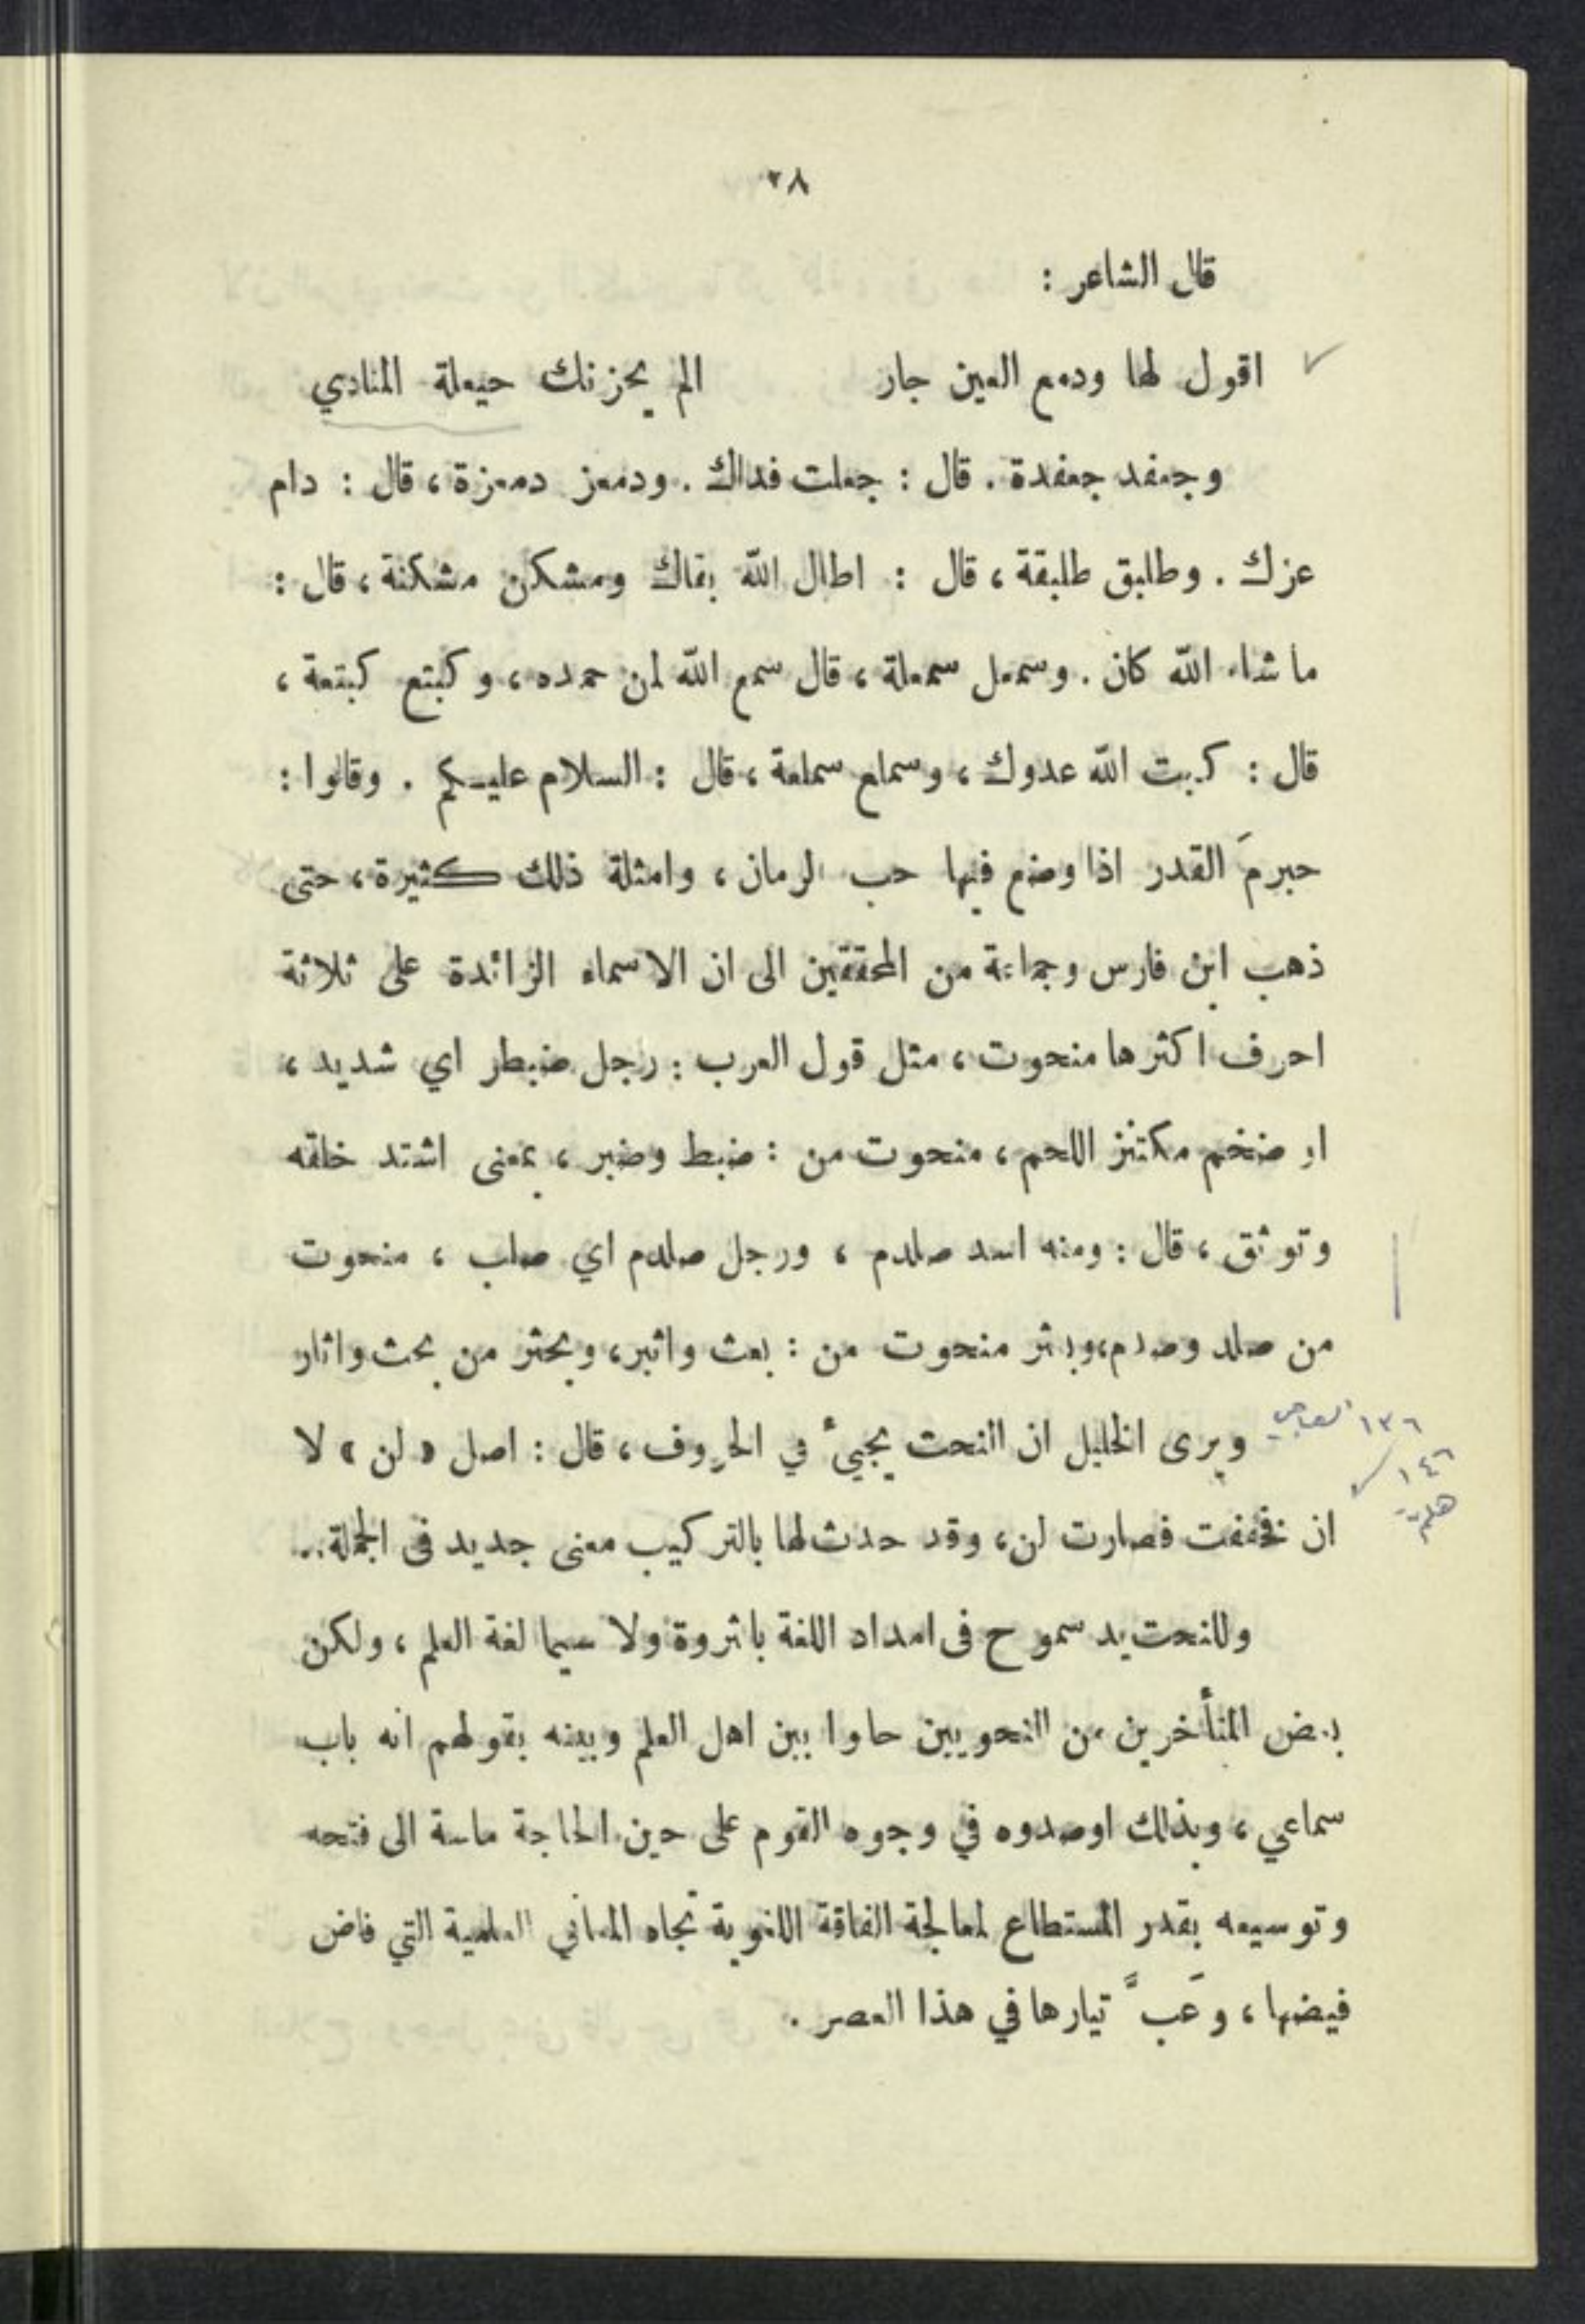 ٣٨
قال الشاعر :
اقول لها ودمع العين جار الم يحزنك حيعلة المنادي
وجعفد جعفدة . قال : جعلت فداك . ودمعز دمعزة ، قال : دام
عزك . وطلبق طلبقة ، قال : اطال الله بقاك ومشكن مشكنة ، قال :
ما شاء الله كان . وسمعل سمعلة ، قال سمع الله لمن حمده ، وكبتع كبتعة ،
قال : كبت الله عدوك ، وسملع سملعة ، قال : السلام عليكم . وقالوا :
حبرمَ القدر اذا وضع فيها حب الرمان ، وامثلة ذلك كثيرة ، حتى
ذهب ابن فارس وجماعة من المحققين الى ان الاسماء الزائدة على ثلاثة
احرف اكثرها منحوت ، مثل قول العرب : رجل ضبطر اي شديد ،
او ضخم مكتنز اللحم ، منحوت من : ضبط وضبر ، بمعنى اشتد خلقه
وتوثق ، قال : ومنه اسد صلدم ، ورجل صلدم اي صلب ، منحوت
من صلد وصدم ، وبعثر منحوت من : بعث واثير ، وبحثر من بحث واثار
١٣٦
ويرى الخليل ان النحت يجيئ في الحروف ، قال : اصل « لن » لا
١٤٦
ان فخففت فصارت لن ، وقد حدث لها بالتركيب معنى جديد في الجملة ..
وللنحت يد سموح في امداد اللغة بالثروة ولا سيما لغة العلم ، ولكن
بعض المتأخرين من النحويين حالوا بين اهل العلم وبينه بقولهم انه باب
سماعي ، وبذلك اوصدوه في وجوه القوم على حين الحاجة ماسة الى فتحه
وتوسيعه بقدر المستطاع لمعالجة الفاقة اللغوية تجاه المعاني العلمية التي فاض
فيضها ، وعَبَّ تيارها في هذا العصر .